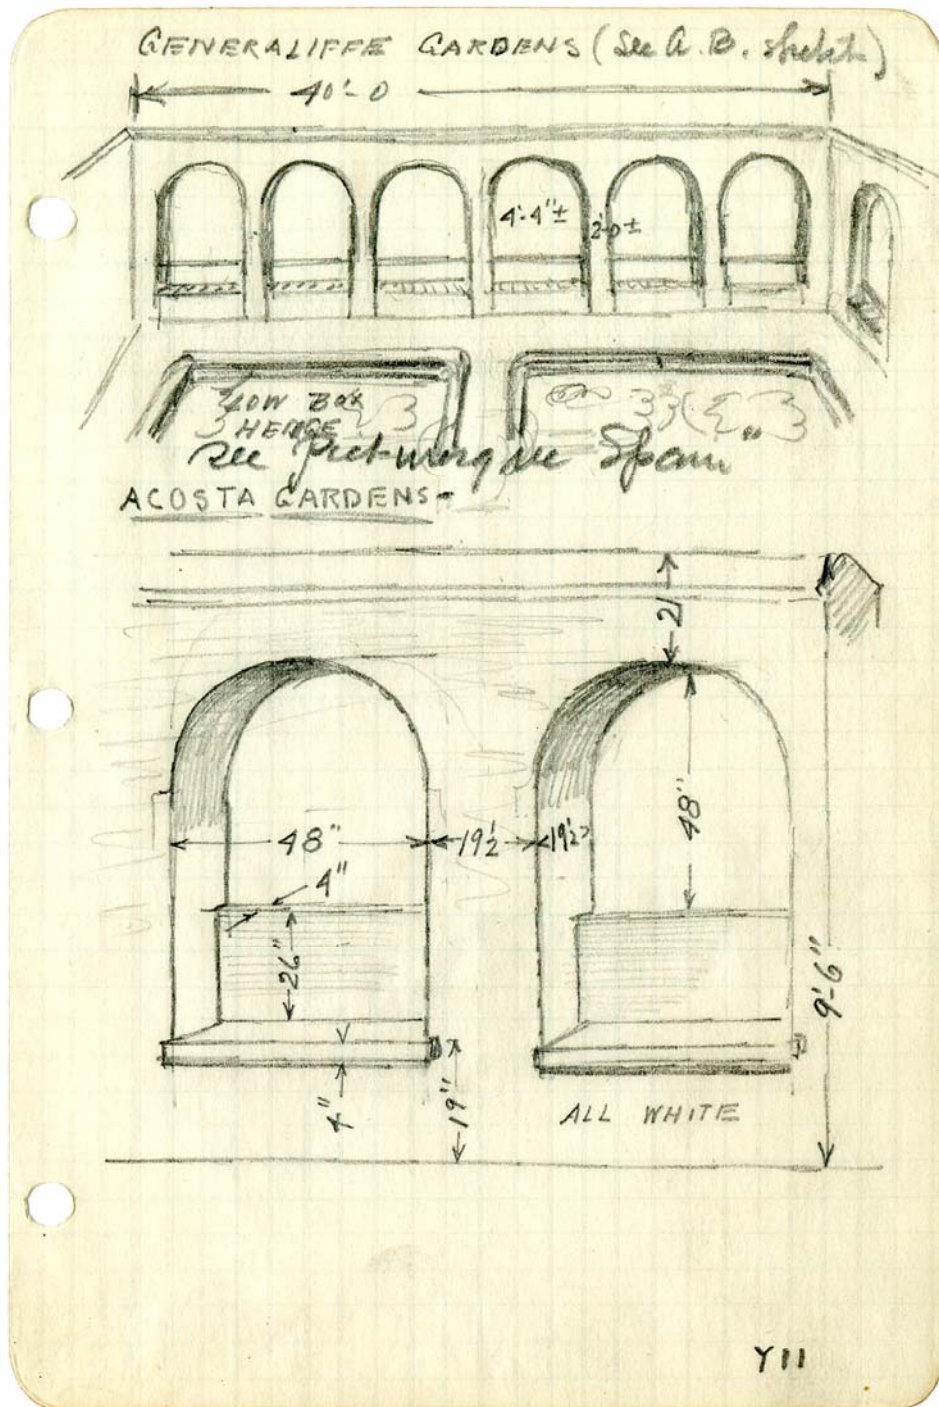 GENERALIFFE GARDENS (See A.B. sketch)
40'-0
4'-4"± 2'-0±
LOW BOX
HEDGE
See "Picturesque Spain"
ACOSTA GARDENS-
21
48"
48" 19½ 19½
4"
26"
9'-6"
4"
19"
ALL WHITE
Y11